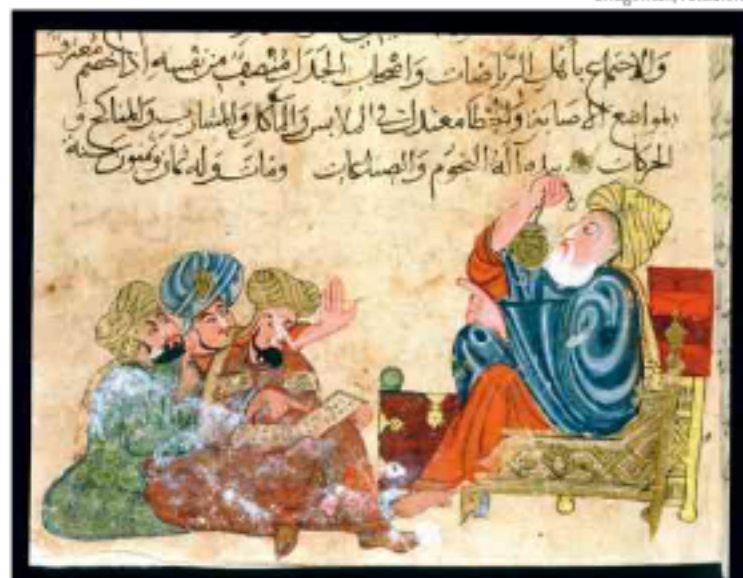 والاجتماع بأهل الرياضات واصحاب الجدل منتصف من نفسه اذا خصم معترف
بمواضع الاصابة والخطا معتدل في الملابس والمأكل والمشارب والمناكح و
الحركات بيده آلة النجوم والصناعات ومات وله ثمان وستون سنة